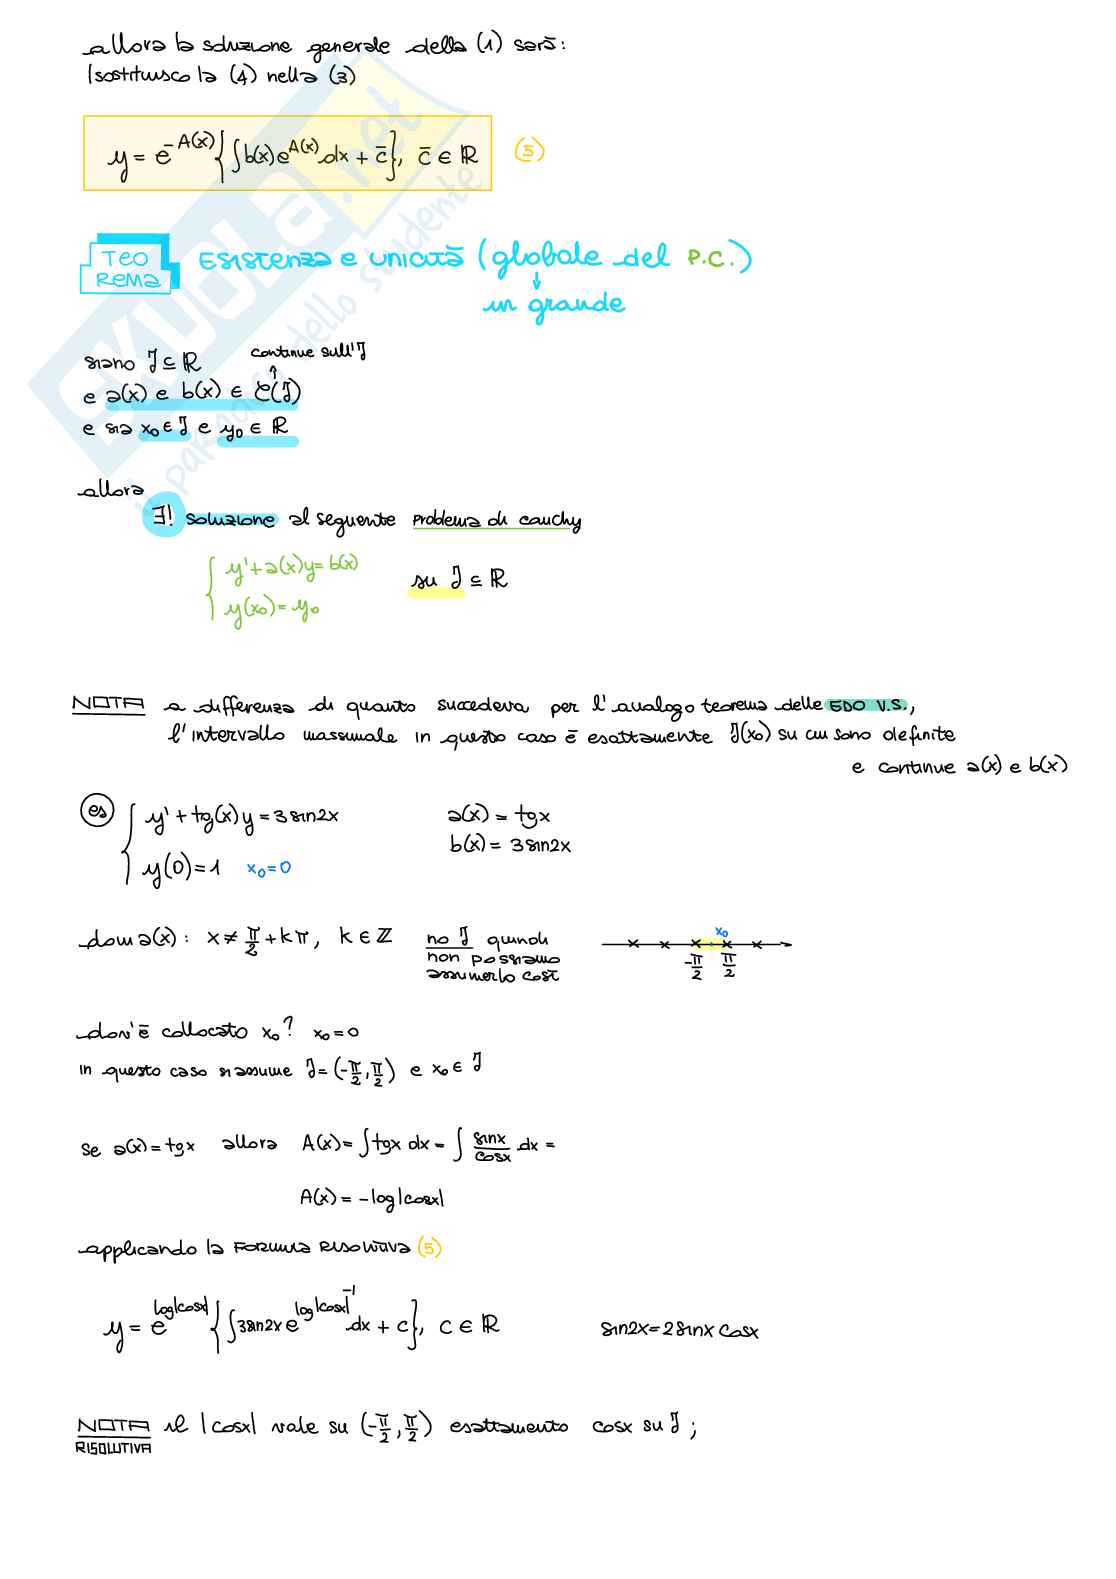 allora la soluzione generale della (1) sarà:
(sostituisco la (4) nella (3)
y = e^{-A(x)} { ∫b(x)e^{A(x)} dx + c̄ }, c̄ ∈ ℝ (5)
TEOREMA Esistenza e unicità (globale del P.C.)
↓
in grande
siano J ⊆ ℝ continue sull'J
↑
e a(x) e b(x) ∈ C(J)
e sia x₀ ∈ J e y₀ ∈ ℝ
allora
∃! soluzione al seguente problema di cauchy
{ y' + a(x)y = b(x)
su J ⊆ ℝ
y(x₀) = y₀
NOTA a differenza di quanto succedeva per l'analogo teorema delle EDO V.S.,
l'intervallo massimale in questo caso è esattamente J(x₀) su cui sono definite
e continue a(x) e b(x)
es { y' + tg(x)y = 3sin2x a(x) = tgx
b(x) = 3sin2x
y(0) = 1 x₀ = 0
dom a(x): x ≠ π/2 + kπ, k ∈ ℤ no J quindi
non possiamo
assumerlo così
x₀
-π/2 π/2
dov'è collocato x₀? x₀ = 0
in questo caso si assume J = (-π/2, π/2) e x₀ ∈ J
se a(x) = tgx allora A(x) = ∫tgx dx = ∫ sinx/cosx dx =
A(x) = -log|cosx|
applicando la FORMULA RISOLUTIVA (5)
y = e^{log|cosx|} { ∫3sin2x e^{log|cosx|^{-1}} dx + c }, c ∈ ℝ sin2x = 2sinx cosx
NOTA il |cosx| vale su (-π/2, π/2) esattamento cosx su J;
RISOLUTIVA
SKUOLA.net
il paradiso dello studente